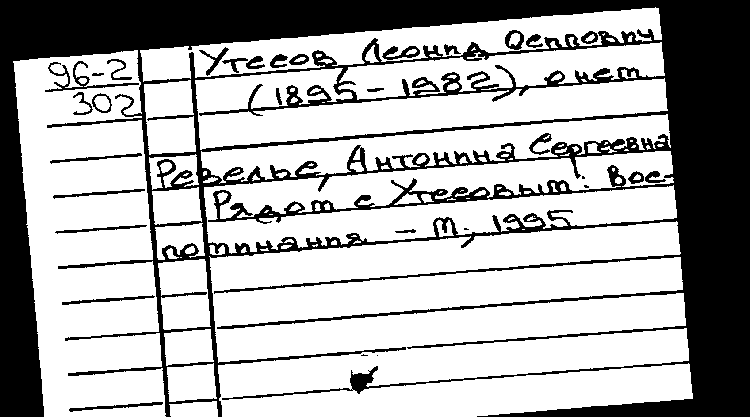 96-2
302
Утесов, Леонид Осипович
(1895-1982), о нем
Ревельс, Антонина Сергеевна
Рядом с Утесовым: Вос-
поминания – М., 1995